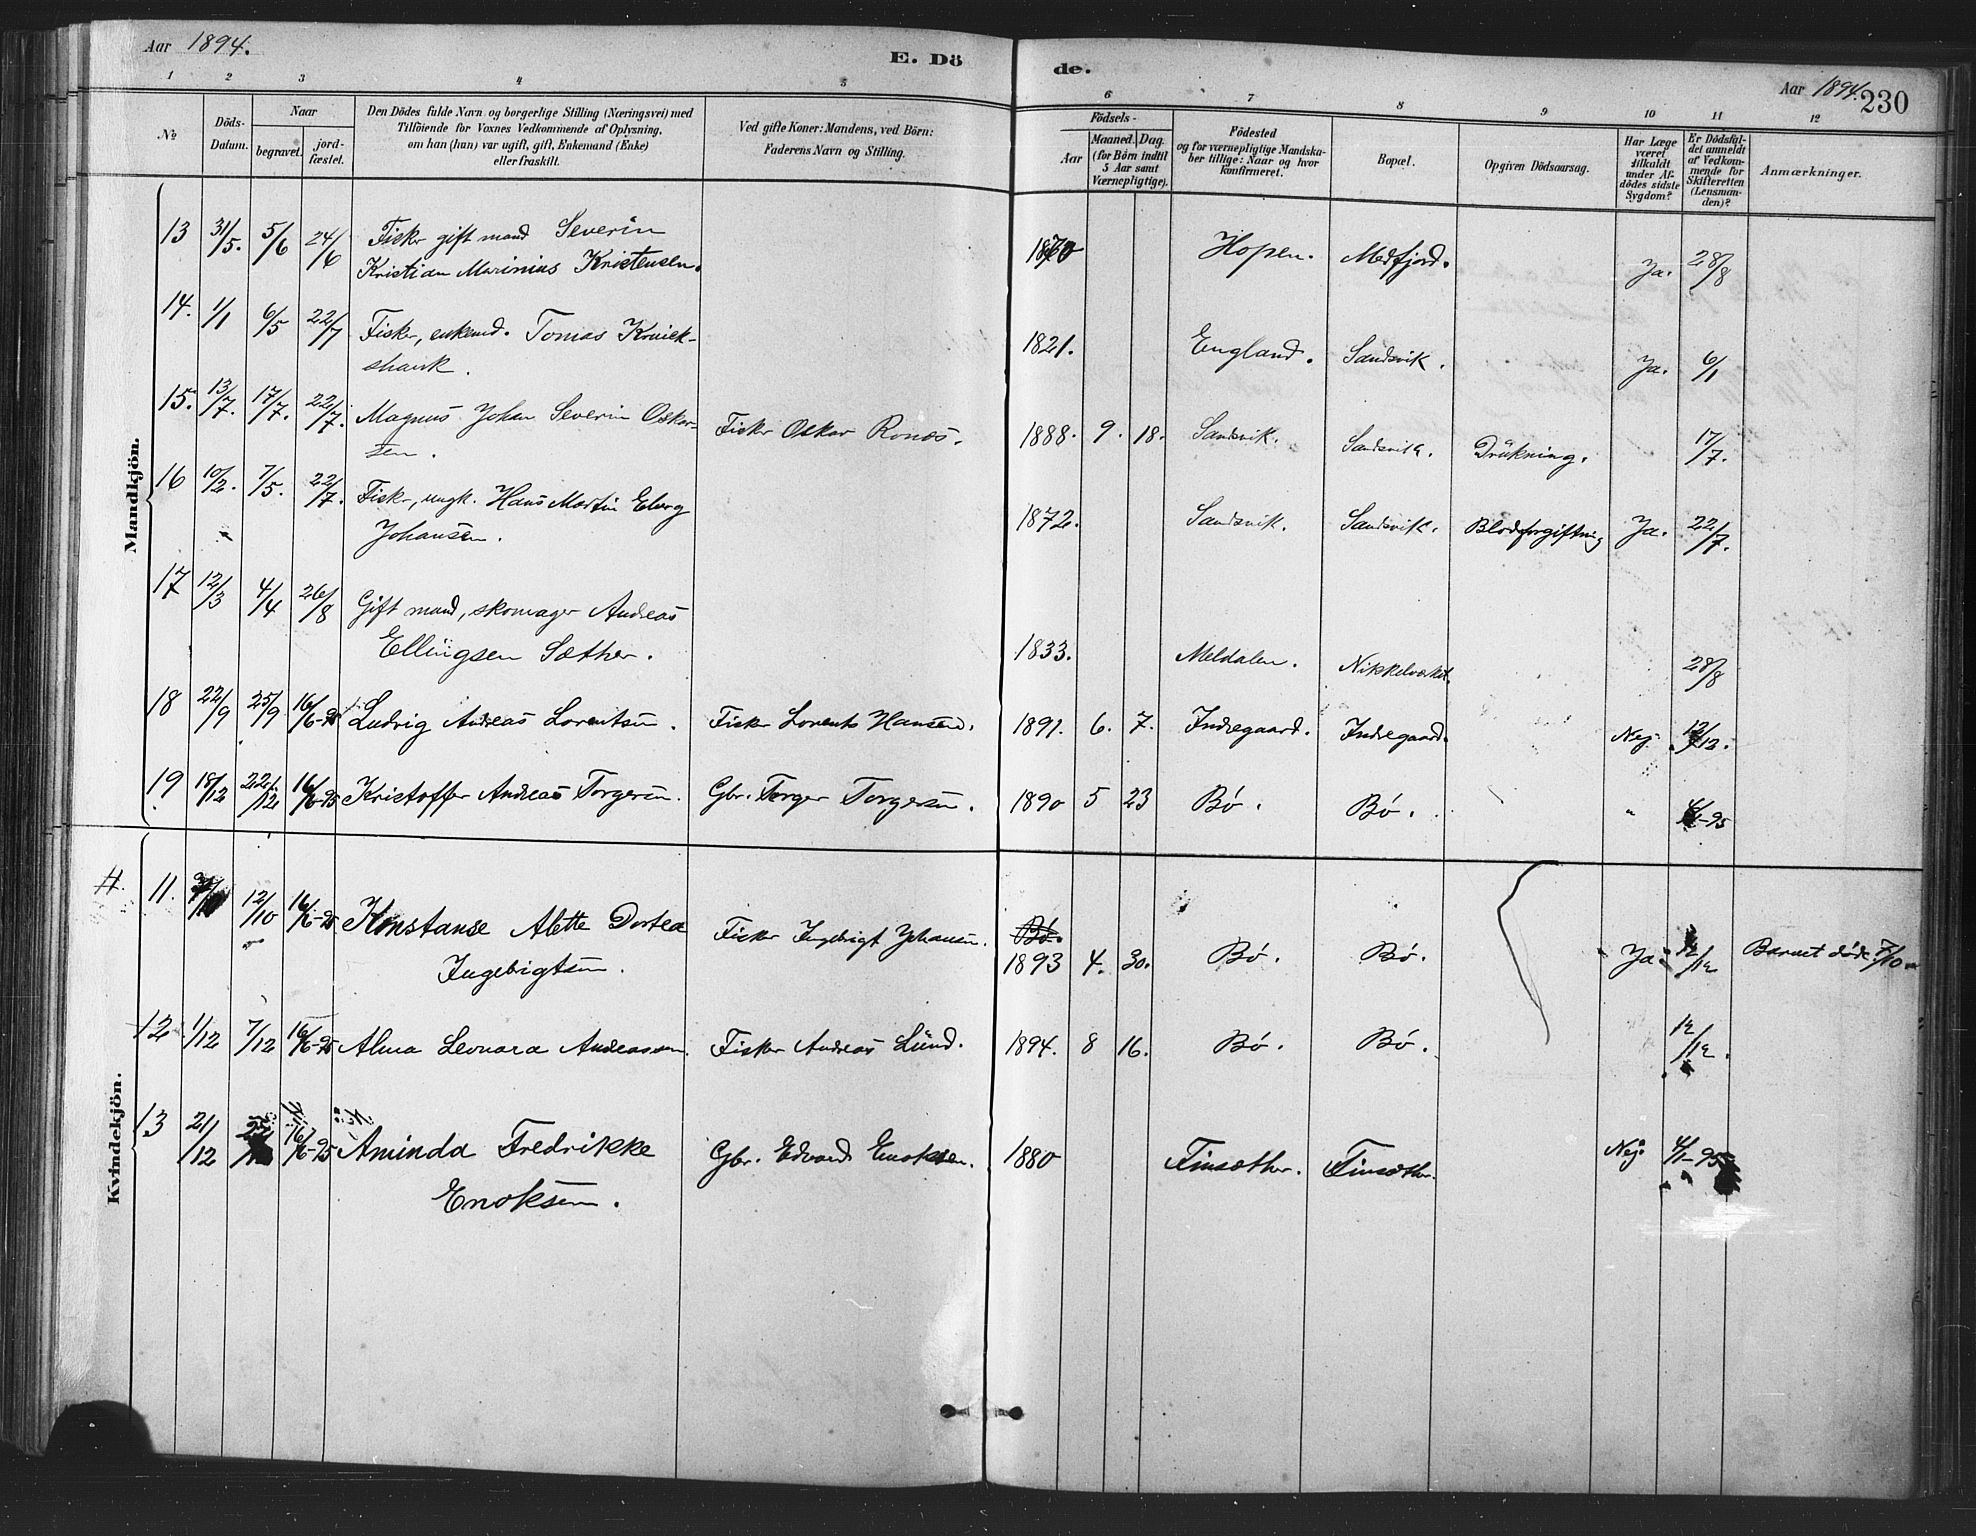 Aar 1894.
E. Dö
de.
Aar 1894.
230
1 2 3 4 5 6 7 8 9 10 11 12
No
Döds-
Datum.
Naar
begravet.
jord-
fæstet.
Den Dödes fulde Navn og borgerlige Stilling (Næringsvei) med
Tilföiende for Voxnes Vedkommende af Oplysning,
om han (hun) var ugift, gift, Enkemand (Enke)
eller fraskilt.
Ved gifte Koner: Mandens, ved Börn:
Faderens Navn og Stilling.
Födsels-
Aar
Maaned. Dag.
(for Börn indtil
5 Aar samt
Værnepligtige).
Födested
og for værnepligtige Mandska-
ber tillige: Naar og hvor
konfirmeret.
Bopæl.
Opgiven Dödsaarsag.
Har Læge
været
tilkaldt
under Af-
dödes sidste
Sygdom?
Er Dödsfal-
det anmeldt
af Vedkom-
mende for
Skifteretten
(Lensman-
den)?
Anmærkninger.
Mandkjön.
13 31/5. 5/6 24/6 Fisker gift mand Severin
Kristian Marinius Kristensen. 1870 Hopen. Medfjord. Ja. 28/8
14. 1/1 6/5 22/7 Fisker, enkemd. Tomas Kruick-
shank. 1821. England. Sandsvik. Ja. 6/1
15. 13/7. 17/7. 22/7. Magnus Johan Severin Oskar-
sen. Fisker Oskar Ronæs. 1888. 9. 18. Sandsvik. Sandsvik. Drükning. 17/7.
16 10/2. 7/5. 22/7. Fisker, ungk. Hans Martin Eberg
Johansen. 1872. Sandsvik. Sandsvik. Blodforgiftning Ja. 22/7.
17 12/3 4/4 26/8 Gift mand, skomager Andreas
Ellingsen Sæther. 1833. Meldalen. Nikkelværket. 28/8
18 22/9 25/9 16/6-95 Ludvig Andreas Lorentsen. Fisker Lorents Hansen. 1891. 6. 7. Indregaard. Indregaard. Nej. 12/12.
19 18/12 22/12 16/6-95 Kristoffer Andreas Torgersen. Gbr. Torger Torgersen. 1890 5 23 Bø. Bø. " -95
Kvindekjön.
11. 12/10 16/6-95 Konstanse Alette Dortea
Ingebrigtsen. Fisker Ingebrigt Johansen. Bø. 1893 4. 30. Bø. Bø. Ja. 12/12 Barnet døde 7/10
12 1/12 7/12 16/6-95 Alma Leonara Andreassen. Fisker Andreas Lünd. 1894. 8 16. Bø. Bø. 12/12.
13 21/12 16/6-95 Aminda Fredrikke
Enoksen. Gbr. Edvard Enoksen. 1880 Finsæther. Finsæther. Nej. 4/1-95